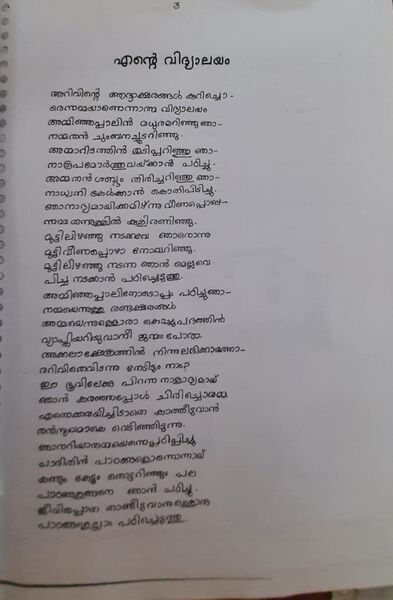 3
എന്റെ വിദ്യാലയം
അറിവിന്റെ ആദ്യാക്ഷരങ്ങൾ കുറിച്ചൊ-
രെന്നമ്മയാണെന്നാത്മ വിദ്യാലയം
അമ്മിഞ്ഞപ്പാലിൻ മധുരമറിഞ്ഞുഞാ-
നമ്മതൻ ചുംബനച്ചൂടറിഞ്ഞു.
അമ്മാറിടത്തിൻ തുടിപ്പറിഞ്ഞു ഞാ-
നാരൂപമോർത്തുവയ്ക്കാൻ പഠിച്ചു.
അമ്മതൻശബ്ദം തിരിച്ചറിഞ്ഞു ഞാ-
നാധ്വനി കേൾക്കാൻ കൊതിപിടിച്ചു.
ഞാനാദ്യമായിക്കമിഴ്ന്നു വീണപ്പൊഴ-
ന്നമ്മതന്നുള്ളിൽ കുളിരണിഞ്ഞു.
മുട്ടിലിഴഞ്ഞു നടക്കവേ ഞാനൊന്നു
മുട്ടിവീണപ്പൊഴാ നോവറിഞ്ഞു.
മുട്ടിലിഴഞ്ഞു നടന്ന ഞാൻ മെല്ലവെ
പിച്ച നടക്കാൻ പഠിച്ചെടുത്തു.
അമ്മിഞ്ഞപ്പാലിനോടൊപ്പം പഠിച്ചുഞാ-
നമ്മയെന്നുള്ള രണ്ടക്ഷരങ്ങൾ
അമ്മയെന്നുള്ളൊരാ കൊച്ചുപദത്തിൻ
വ്യാപ്തിയറിയുവാനീ ജന്മം പോരാ.
അക്കലാക്ഷേത്രത്തിൻ നിന്നുലഭിക്കാത്തൊ-
രറിവിതെവിടന്നു നേടിടും നാം?
ഈ ഭൂവിലേക്കു പിറന്ന നാളാദ്യമായ്
ഞാൻ കരഞ്ഞപ്പോൾ ചിരിച്ചൊരമ്മ
എന്നെക്കരയിച്ചിടാതെ കാത്തീടുവാൻ
തൻസുഖമാകെ വെടിഞ്ഞിടുന്നു.
ഞാനറിയാതമ്മയെന്നെപ്പഠിപ്പിച്ചു
പാരിതിൻ പാഠങ്ങളൊന്നൊന്നായ്
കണ്ടും കേട്ടും തൊട്ടറിഞ്ഞും പല
പാഠങ്ങളങ്ങനെ ഞാൻ പഠിച്ചു.
ജീവിതപ്പാത താണ്ടീടുവാനുള്ളൊരു
പാഠങ്ങളെല്ലാം പഠിച്ചെടുത്തു.